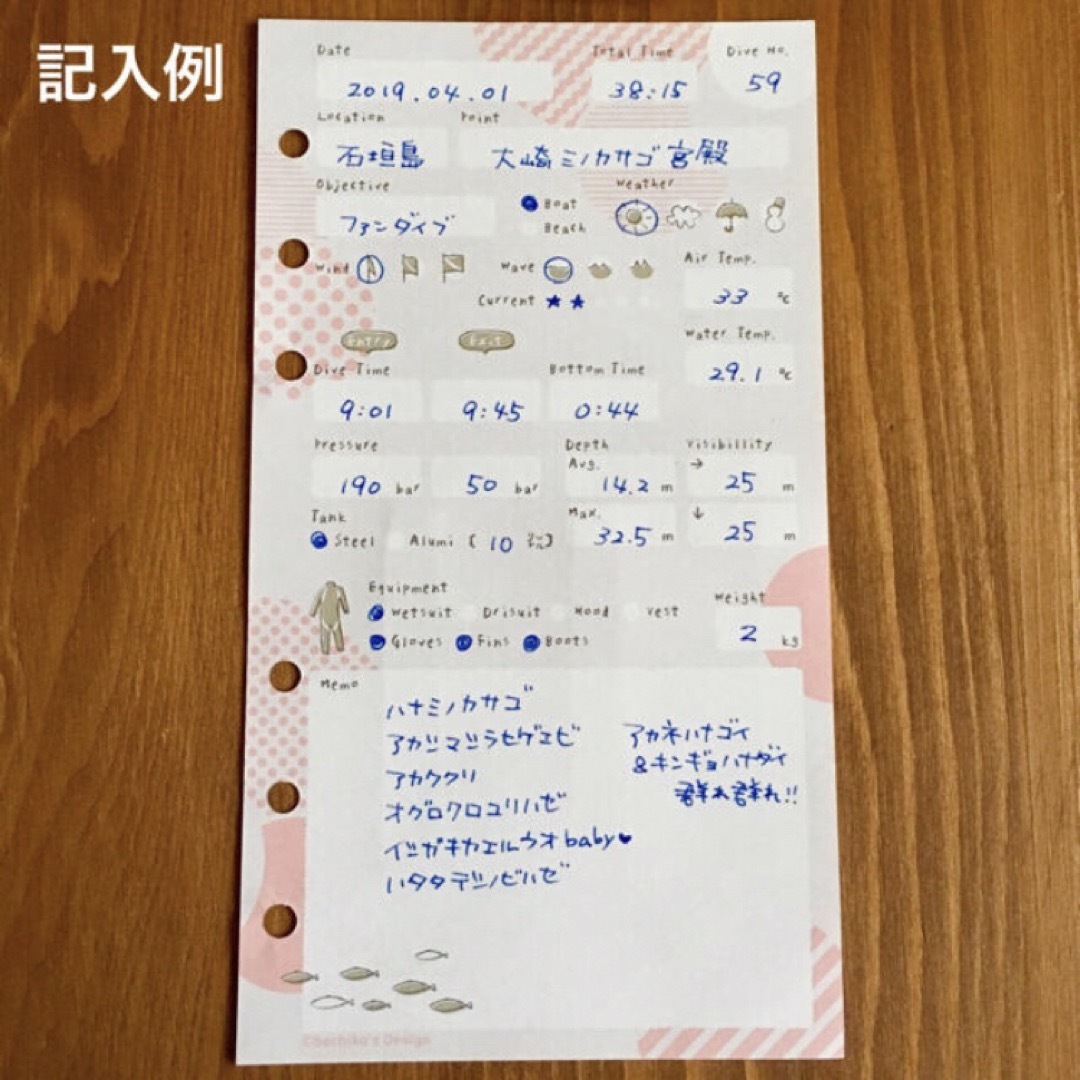 記入例
Date Total Time Dive No.
2019.04.01 38:15 59
Location Point
石垣島 大崎ミノカサゴ宮殿
Objective Weather
ファンダイブ Boat
Beach
Wind Wave Air Temp.
33 ℃
Current ★★
Entry Exit Water Temp.
29.1 ℃
Dive Time Bottom Time
9:01 9:45 0:44
Pressure Depth Visibillity
Avg. →
190 bar 50 bar 14.2 m 25 m
Tank Max. ↓
Steel Alumi [10 リットル] 32.5 m 25 m
Equipment Weight
Wetsuit Drisuit Hood Vest
2 kg
Gloves Fins Boots
Memo
ハナミノカサゴ
アカシマシラヒゲエビ
アカククリ
オグロクロユリハゼ
イシガキカエルウオbaby♥
ハタタテシノビハゼ
アカネハナゴイ
&キンギョハナダイ
群れ群れ!!
©Sachika's Design